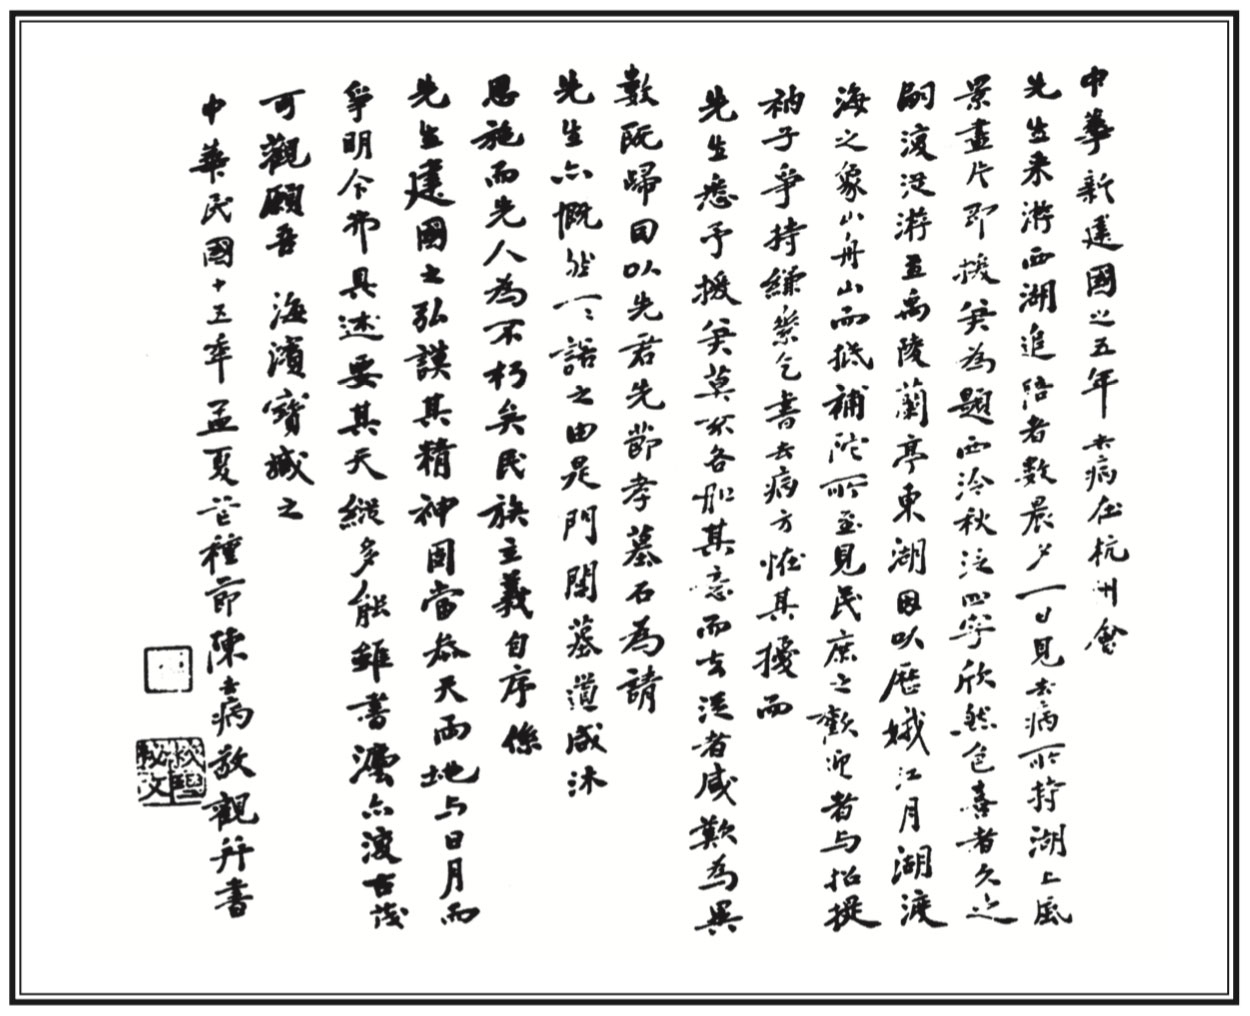 中華新建國之五年 去病在杭州會
先生来游西湖追陪者數晨夕一日見去病所持湖上風
景畫片即援筆為題西泠秋泛四字欣然色喜者久之
嗣復從游至禹陵蘭亭東湖因以歷娥江月湖渡
海之象山舟山而抵補陀所至見民庶之歡迎者与招提
衲子爭持縑素乞書去病方恠其擾而
先生悉予援筆莫不各如其意而去從者咸歎為異
數既歸因以先君先節孝墓石為請
先生亦慨然一一諾之由是門閭墓道咸沐
恩施而先人為不朽矣民族主義自序係
先生建國之弘謨其精神固當叅天兩地与日月而
爭明今弟具述要其天縱多能雖書灋亦渡古茂
可觀願吾 海濱寶臧之
中華民國十五年孟夏芒種節陳去病敬觀并書